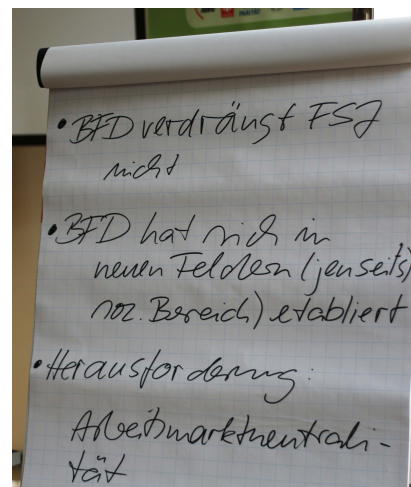 • BFD verdrängt FSJ
nicht
• BFD hat sich in
neuen Feldern (jenseits
soz. Bereich) etabliert
• Herausforderung:
Arbeitsmarktneutrali-
tät